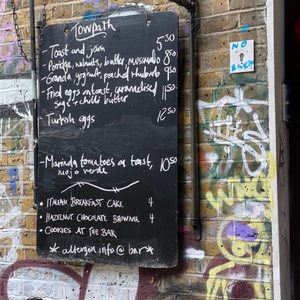 Towpath
Toast and jam 5.50
Porridge, walnuts, butter, muscovado 8.50
Granola, yoghurt, poached rhubarb 9.50
Fried eggs on toast, caramelised 11.50
sage & chilli butter
Turkish eggs 12.50
- Marinda tomatoes on toast, 10.50
mojo verde
• ITALIAN BREAKFAST CAKE 4
• HAZELNUT CHOCOLATE BROWNIE 4
• COOKIES AT THE BAR
* allergen info @ bar *
NO